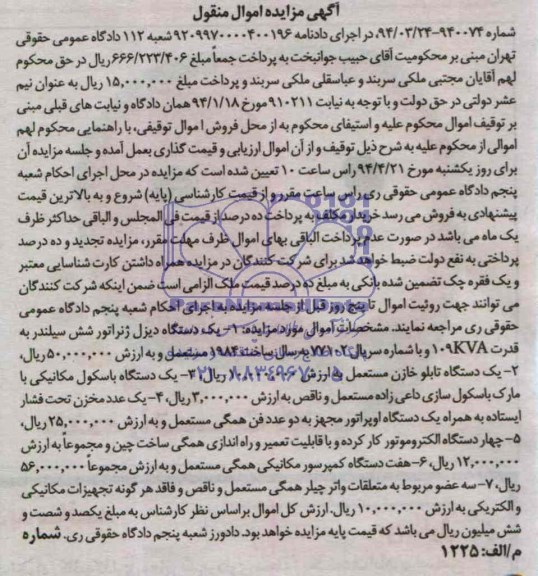 آگهی مزایده اموال منقول
شماره ۹۴۰۰۷۴-۹۴/۰۳/۲۴، در اجرای دادنامه ۹۲۰۹۹۷۰۰۰۰۴۰۰۱۹۶ شعبه ۱۱۲ دادگاه عمومی حقوقی
تهران مبنی بر محکومیت آقای حبیب جوانبخت به پرداخت جمعاً مبلغ ۶۶۶/۲۲۳/۴۰۶ ریال در حق محکوم
لهم آقایان مجتبی ملکی سربند و عباسقلی ملکی سربند و پرداخت مبلغ ۱۵,۰۰۰,۰۰۰ ریال به عنوان نیم
عشر دولتی در حق دولت و با توجه به نیابت ۹۱۰۲۱۱ مورخ ۹۴/۱/۱۸ همان دادگاه و نیابت های قبلی مبنی
بر توقیف اموال محکوم علیه و استیفای محکوم به از محل فروش اموال توقیفی، با راهنمایی محکوم لهم
اموالی از محکوم علیه به شرح ذیل توقیف و از آن اموال ارزیابی و قیمت گذاری بعمل آمده و جلسه مزایده آن
برای روز یکشنبه مورخ ۹۴/۴/۲۱ راس ساعت ۱۰ تعیین شده است که مزایده در محل اجرای احکام شعبه
پنجم دادگاه عمومی حقوقی ری راس ساعت مقرر و از قیمت کارشناسی (پایه) شروع و به بالاترین قیمت
پیشنهادی به فروش می رسد خریدار مکلف به پرداخت ده درصد از قیمت فی المجلس و الباقی حداکثر ظرف
یک ماه می باشد در صورت عدم پرداخت الباقی بهای اموال ظرف مهلت مقرر، مزایده تجدید و ده درصد
پرداختی به نفع دولت ضبط خواهد شد برای شرکت کنندگان در مزایده همراه داشتن کارت شناسایی معتبر
و یک فقره چک تضمین شده بانکی به مبلغ ده درصد قیمت ملک الزامی است ضمن اینکه شرکت کنندگان
می توانند جهت روئیت اموال تا پنج روز قبل از جلسه مزایده به اجرای احکام شعبه پنجم دادگاه عمومی
حقوقی ری مراجعه نمایند. مشخصات اموال مورد مزایده: ۱- یک دستگاه دیزل ژنراتور شش سیلندر به
قدرت ۱۰۹KVA و با شماره سریال ۷۷۱۰۲ به سال ساخت ۱۹۸۴ مستعمل و به ارزش ۵۰,۰۰۰,۰۰۰ ریال،
۲- یک دستگاه تابلو خازن مستعمل به ارزش ریال، ۳- یک دستگاه باسکول مکانیکی با
مارک باسکول سازی داعی زاده مستعمل و ناقص به ارزش ۳,۰۰۰,۰۰۰ ریال، ۴- یک عدد مخزن تحت فشار
ایستاده به همراه یک دستگاه اوپراتور مجهز به دو عدد فن همگی مستعمل و به ارزش ۲۵,۰۰۰,۰۰۰ ریال،
۵- چهار دستگاه الکتروموتور کار کرده و با قابلیت تعمیر و راه اندازی همگی ساخت چین و مجموعاً به ارزش
۱۲,۰۰۰,۰۰۰ ریال، ۶- هفت دستگاه کمپرسور مکانیکی همگی مستعمل و به ارزش مجموعاً ۵۶,۰۰۰,۰۰۰
ریال، ۷- سه عضو مربوط به متعلقات واتر چیلر همگی مستعمل و ناقص و فاقد هر گونه تجهیزات مکانیکی
و الکتریکی به ارزش ۱۰,۰۰۰,۰۰۰ ریال. ارزش کل اموال براساس نظر کارشناس به مبلغ یکصد و شصت و
شش میلیون ریال می باشد که قیمت پایه مزایده خواهد بود. دادورز شعبه پنجم دادگاه حقوقی ری. شماره
م/الف: ۱۲۲۵